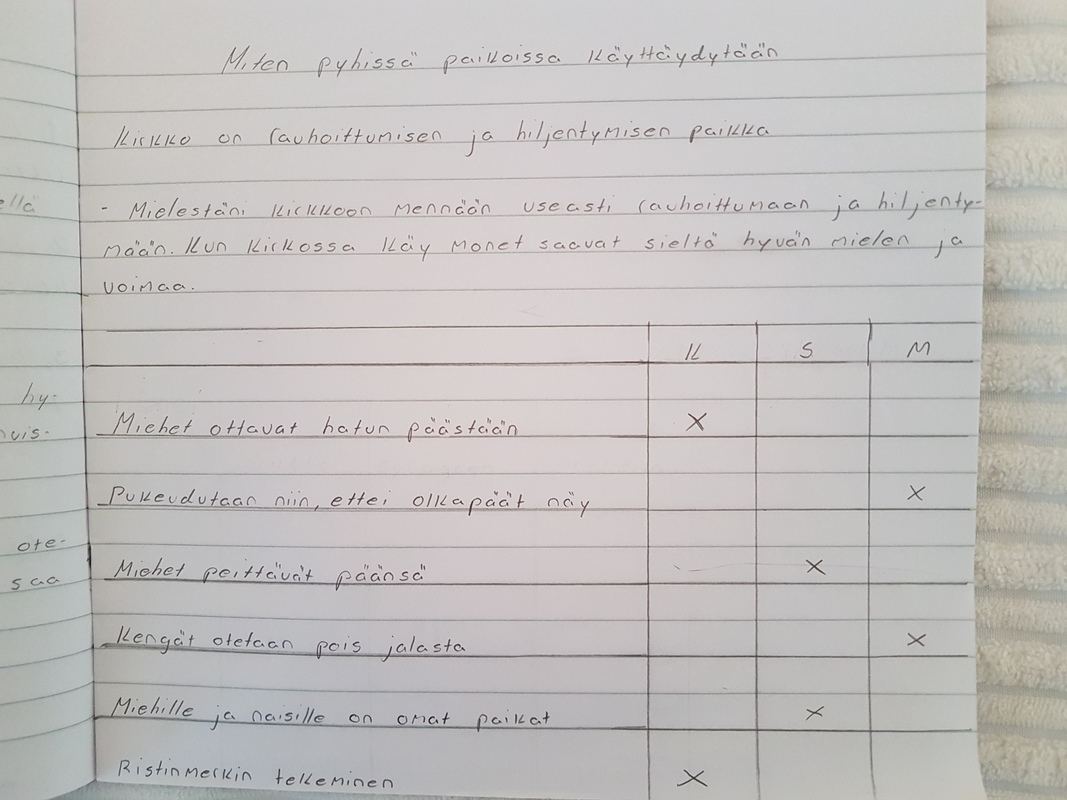 Miten pyhissä paikoissa käyttäydytään
Kirkko on rauhoittumisen ja hiljentymisen paikka
- Mielestäni kirkkoon mennään useasti rauhoittumaan ja hiljenty-
mään. Kun kirkossa käy monet saavat sieltä hyvän mielen ja
voimaa.
K S M
Miehet ottavat hatun päästään X
Pukeudutaan niin, ettei olkapäät näy X
Miehet peittävät päänsä X
Kengät otetaan pois jalasta X
Miehille ja naisille on omat paikat X
Ristinmerkin tekeminen X
ellä
hy-
uis-
ote-
saa